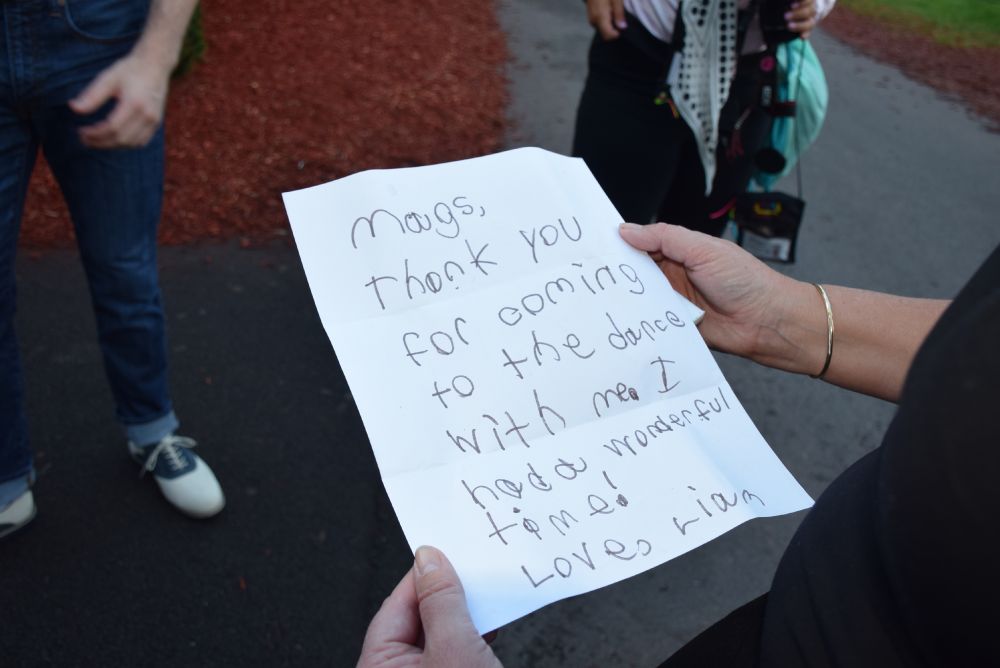 Mags,
Thank you
for coming
to the dance
with me. I
had a wonderful
time!
Love, Liam